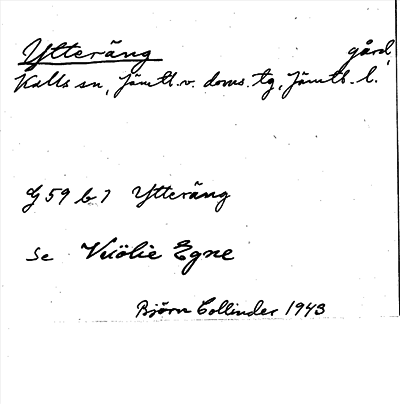 Ytteräng gård,
Kalls sn, Jämtl. v. doms. tg, Jämtl. l.
G 59 b 7 Ytteräng
se Vuölie Egne
Björn Collinder 1943